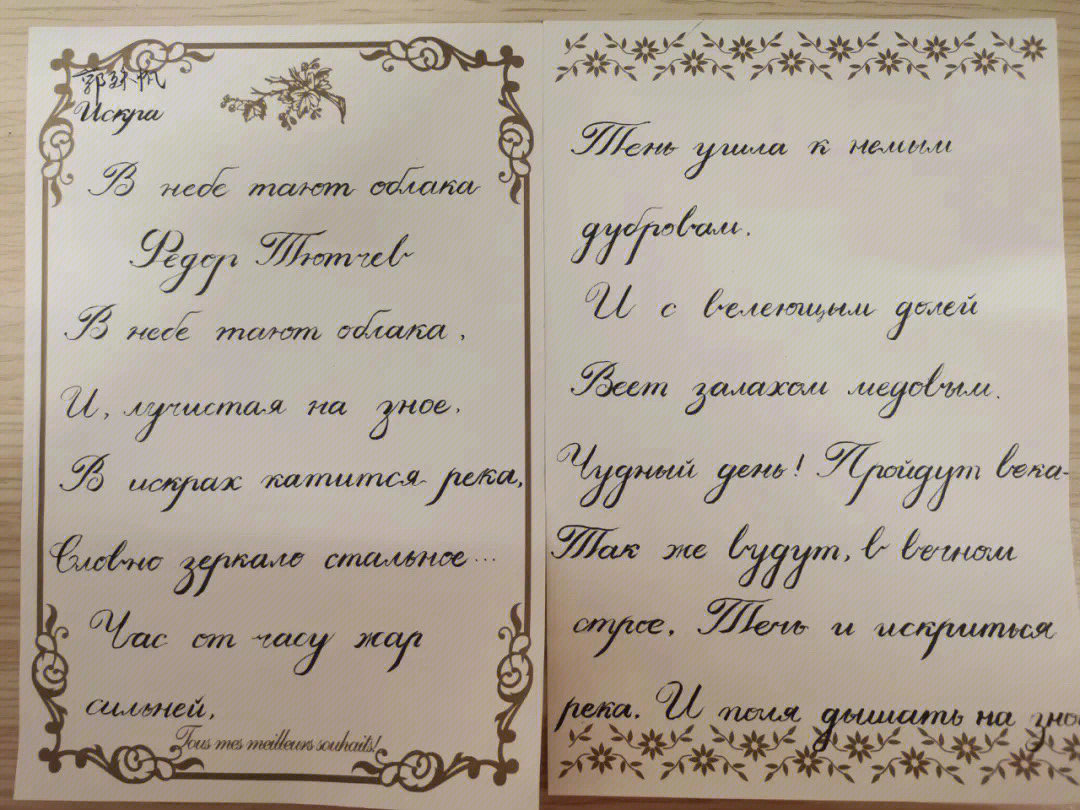 郭环帆
Искра
В небе тают облака
Федор Тютчев
В небе тают облака,
И, лучистая на зное,
В искрах катится река,
Словно зеркало стальное...
Час от часу жар
сильней,
Tous mes meilleurs souhaits!
Тень ушла к немым
дубровам.
И с велеющим долей
Веет залахом медовым.
Чудный день! Пройдут века-
Так же вудут, в вечном
строе, Течь и искриться
река. И поля дышать на зно